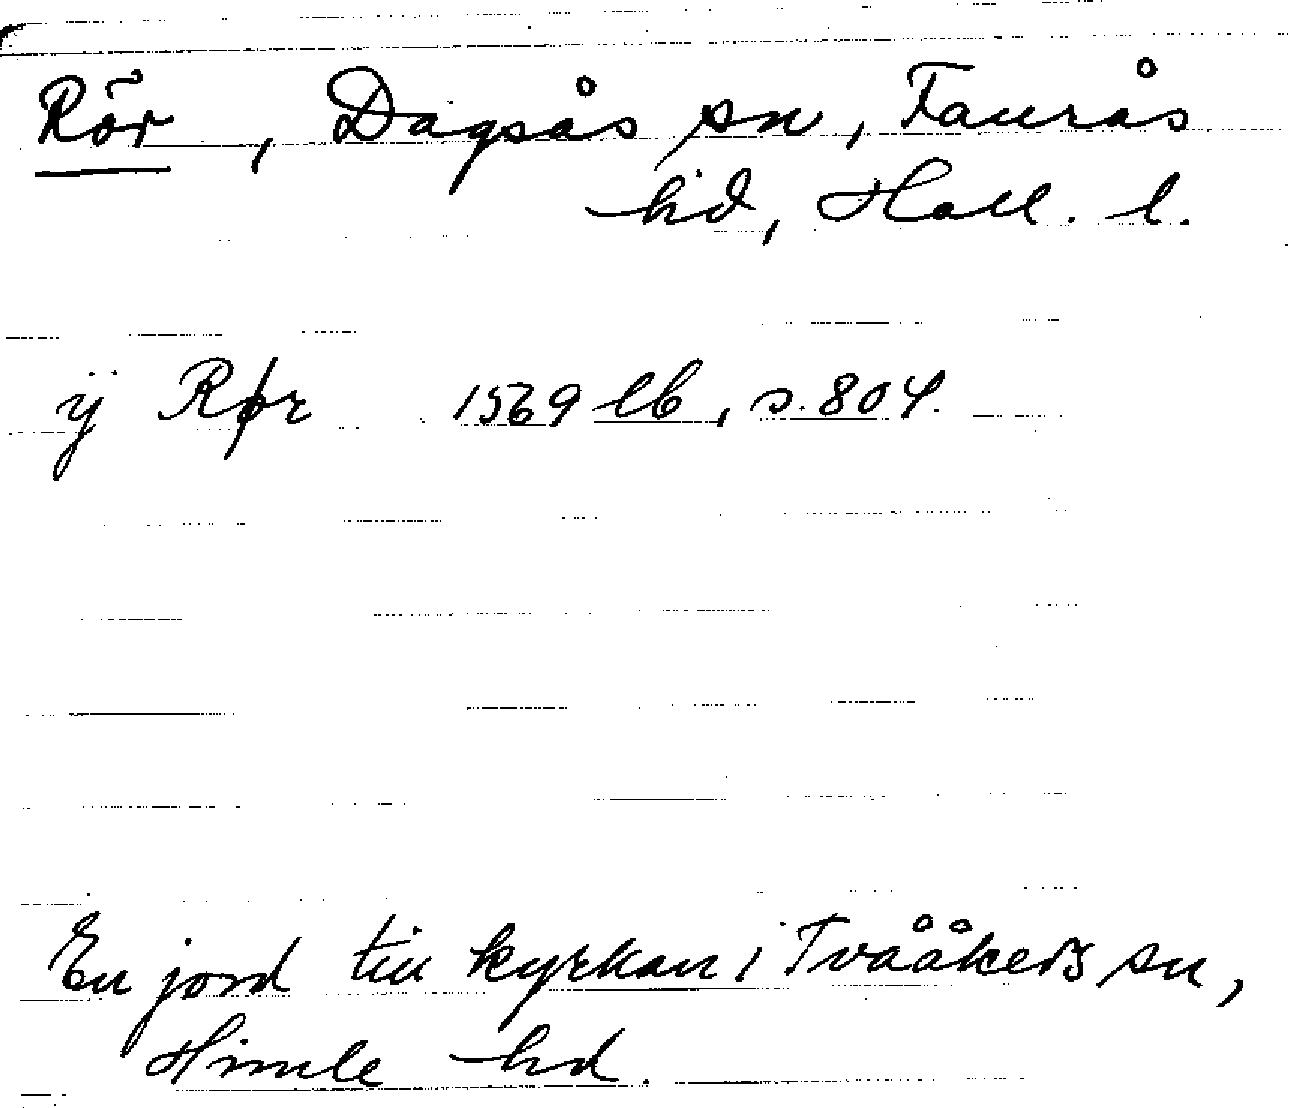 Rör, Dagsås sn, Faurås
hd, Hall. l.
ÿ Rør 1569 lb, s. 804.
En jord till kyrkan i Tvååkers sn,
Himle hd.